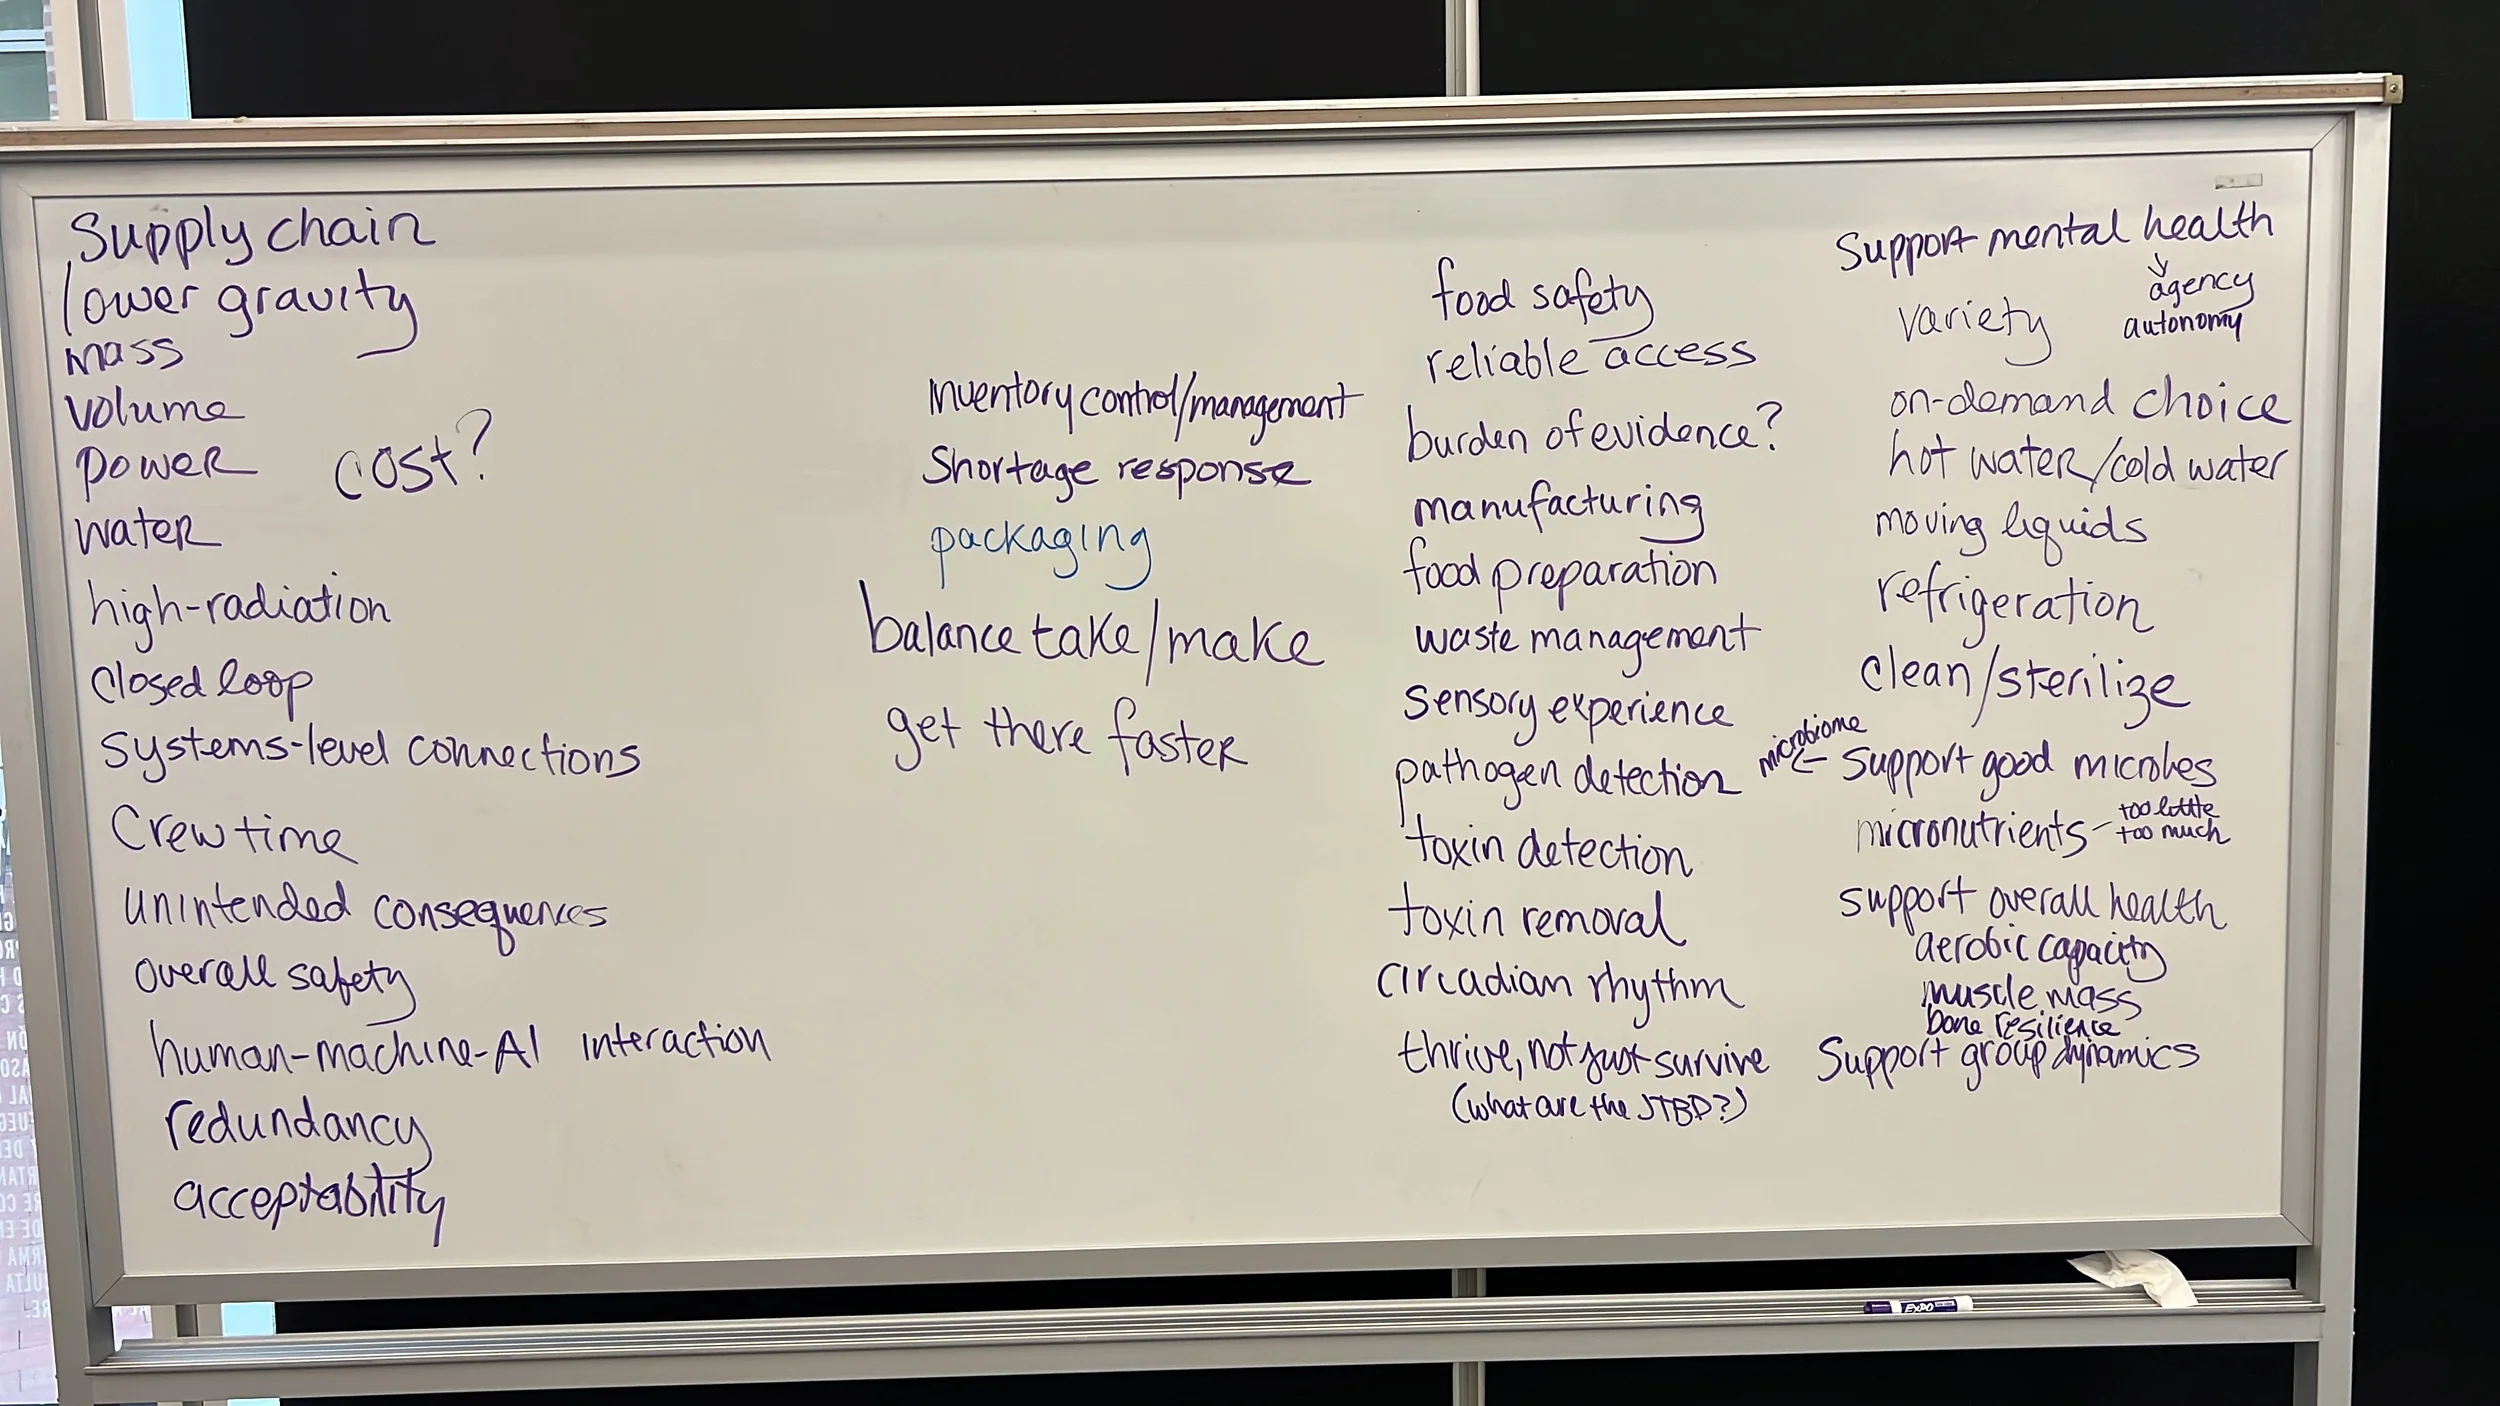 Supply chain
lower gravity
mass
volume
power
cost?
water
high-radiation
closed loop
systems-level connections
Crew time
unintended consequences
overall safety
human-machine-AI interaction
redundancy
acceptability
Inventory control/management
Shortage response
packaging
balance take/make
get there faster
food safety
reliable access
burden of evidence?
manufacturing
food preparation
waste management
sensory experience
pathogen detection
toxin detection
toxin removal
circadian rhythm
thrive, not just survive
(what are the JTBD?)
Support mental health
↓
agency
autonomy
variety
on-demand choice
hot water/cold water
moving liquids
refrigeration
clean/sterilize
microbiome
← support good microbes
micronutrients - too little
too much
support overall health
aerobic capacity
muscle mass
bone resilience
Support group dynamics
EXPO